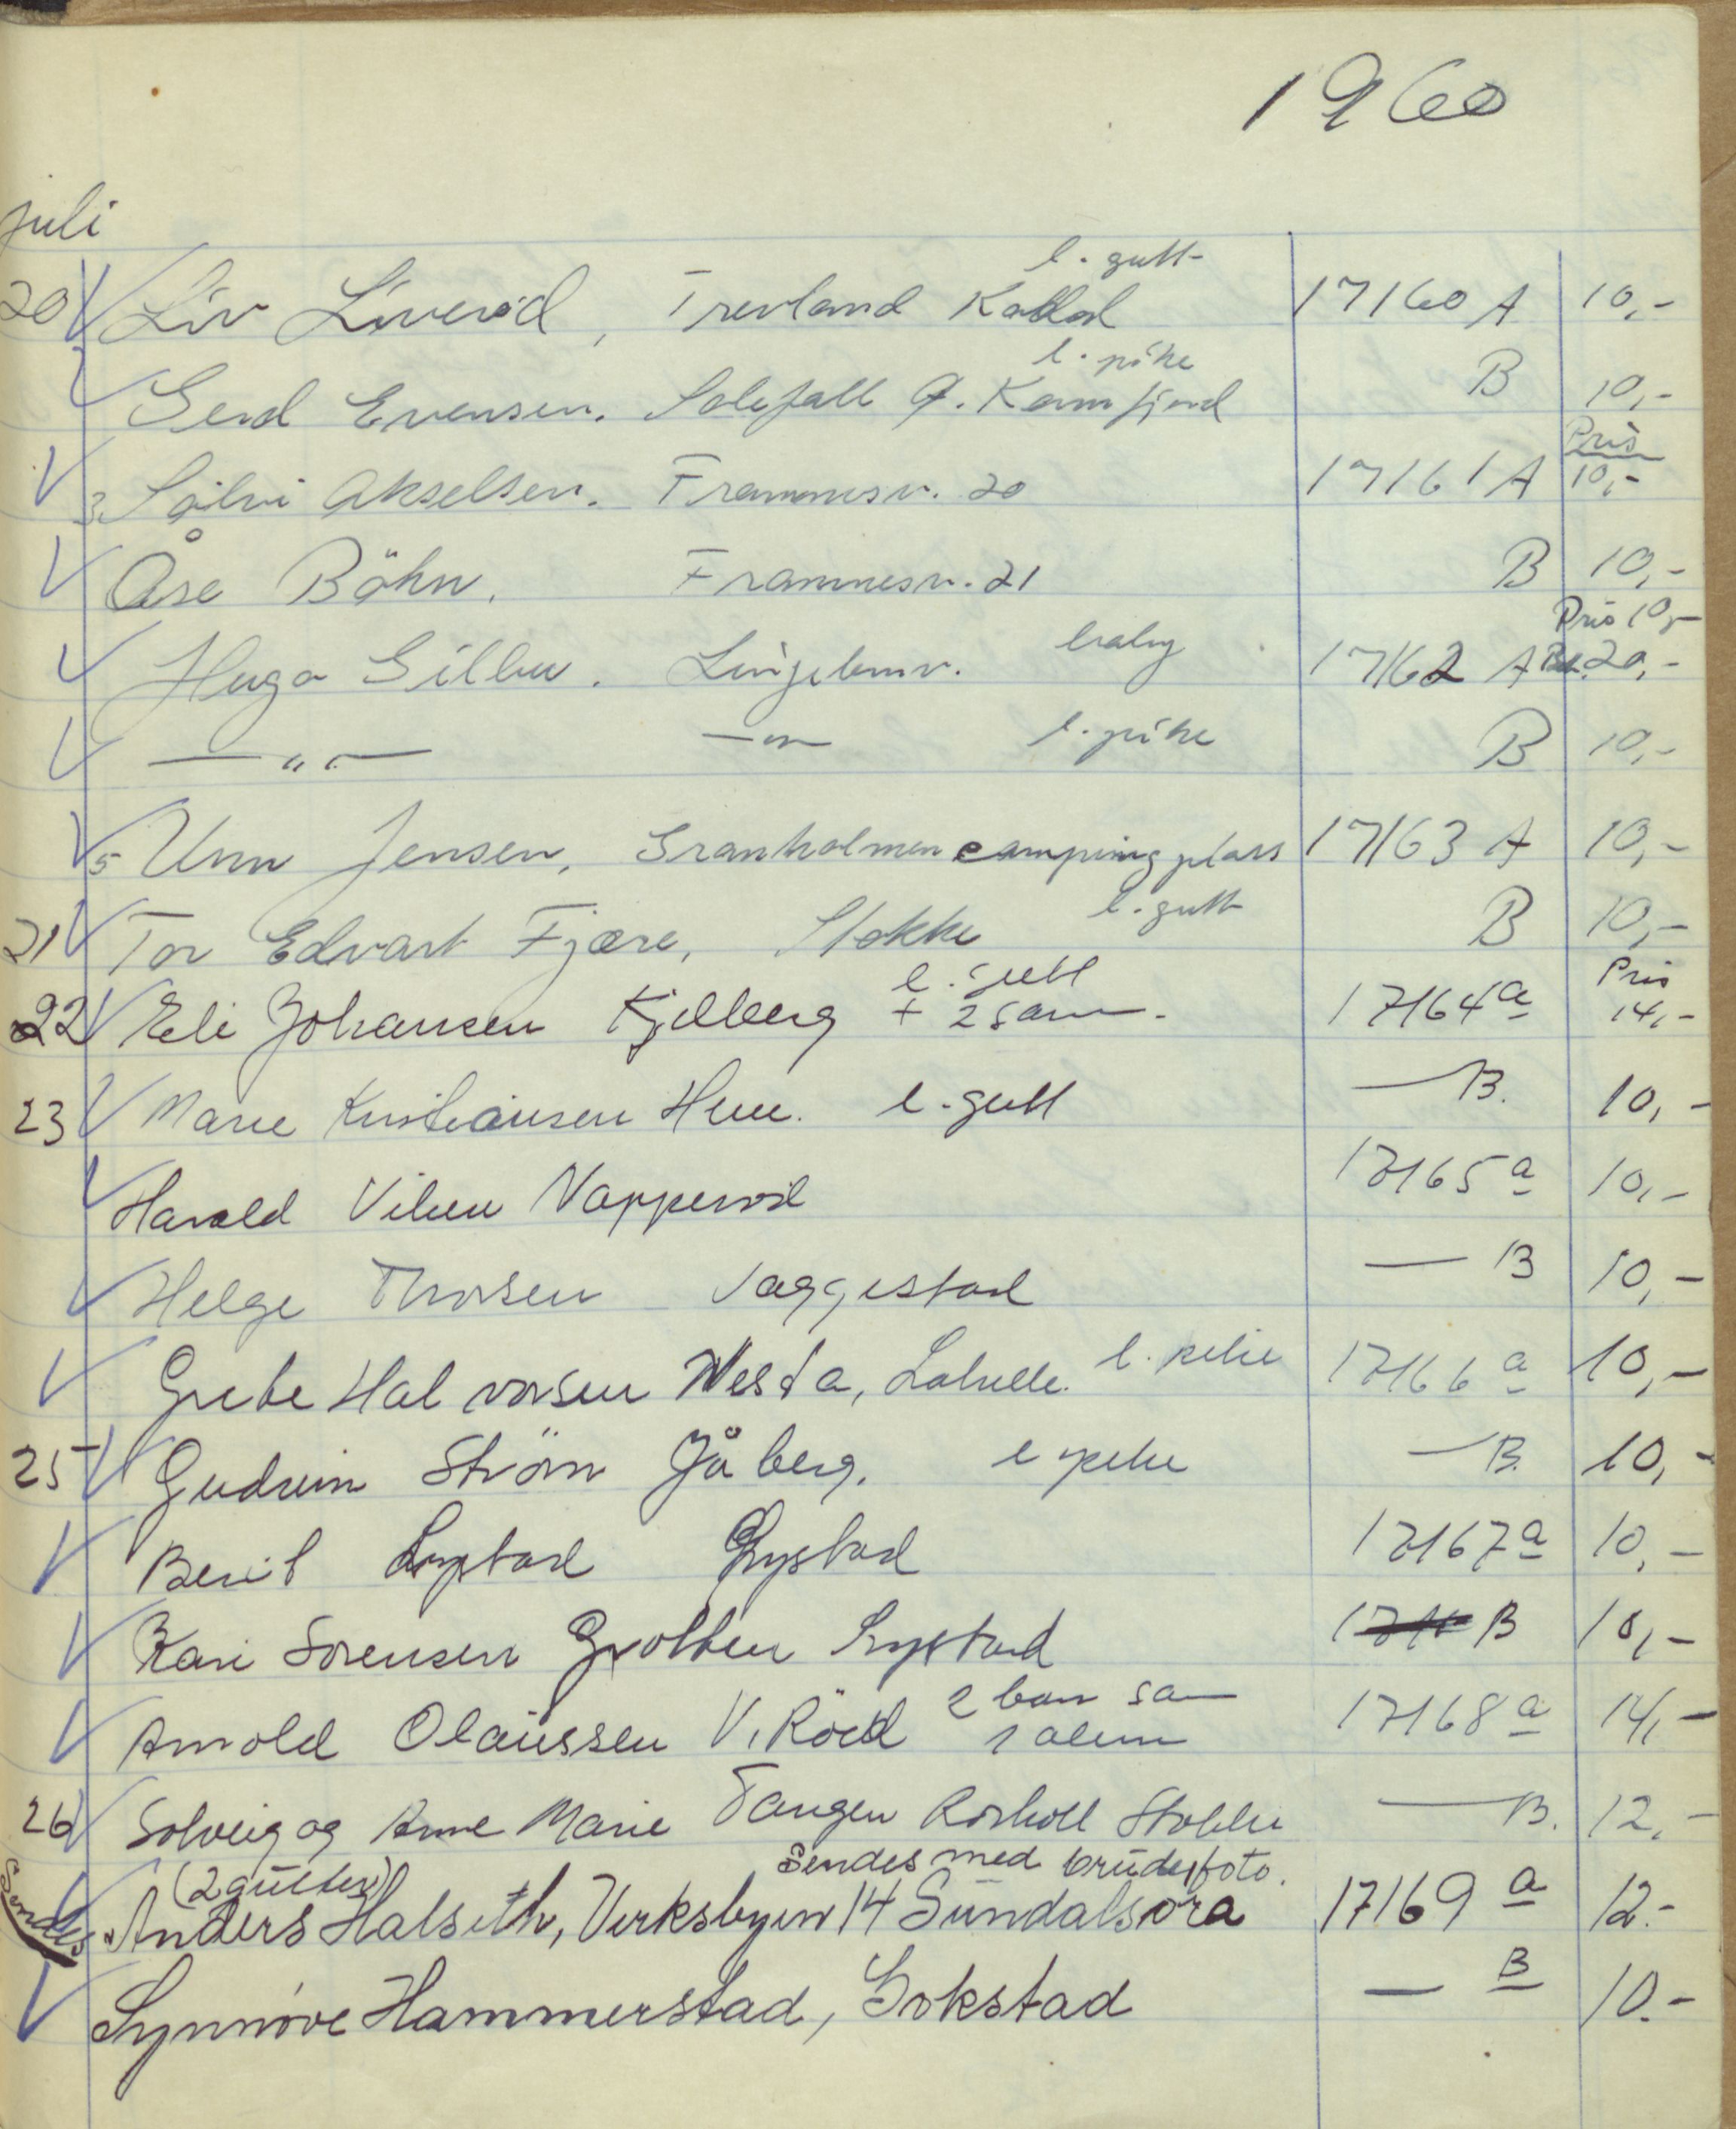 1960
juli
l. gutt
20 Liv Liverød, Trevland Kodal 17160 A 10,-
l. pike
Gerd Evensen. Solefall p. Kamfjord B 10,-
Pris
3 Sølvi Akselsen. Framnesv. 20 17161 A 10,-
Åse Böhn. Framnesv. 21 B 10,-
Pris 10,-
Hugo Gilbu. baby 17162 A Bet. 20,-
— " — — " — l. pike B 10,-
5 Unn Jensen, Granholmen camping plass 17163 A 10,-
l. gutt
21 Tor Edvart Fjære, Stokke B 10,-
l. gutt Pris
22 Eli Johansen Kjelberg + 2 sam. 17164 a 14,-
23 Marie Kristiansen Hem. l. gutt — B. 10,-
Harald Vilien Napperød 17165 a 10,-
Helge Thorsen Vaggestad — B 10,-
Grete Halvorsen Westa, Lahelle. l. pike 17166 a 10,-
25 Gudrun Ström Jåberg. l pike — B. 10,-
Berit Lystad Lystad 17167 a 10,-
Kari Sørensen Grotten Lystad B 10,-
2 barn sam
Arnold Olaussen V. Röd 1 alene 17168 a 14,-
26 Solveig og Anne Marie Tangen Stokke — B. 12,-
(2 gutter) Sendes med brudefoto.
Sendes Anders Halseth, Verksbyen 14 Sundalsøra 17169 a 12.-
Synnøve Hammerstad, Gokstad — B 10.-